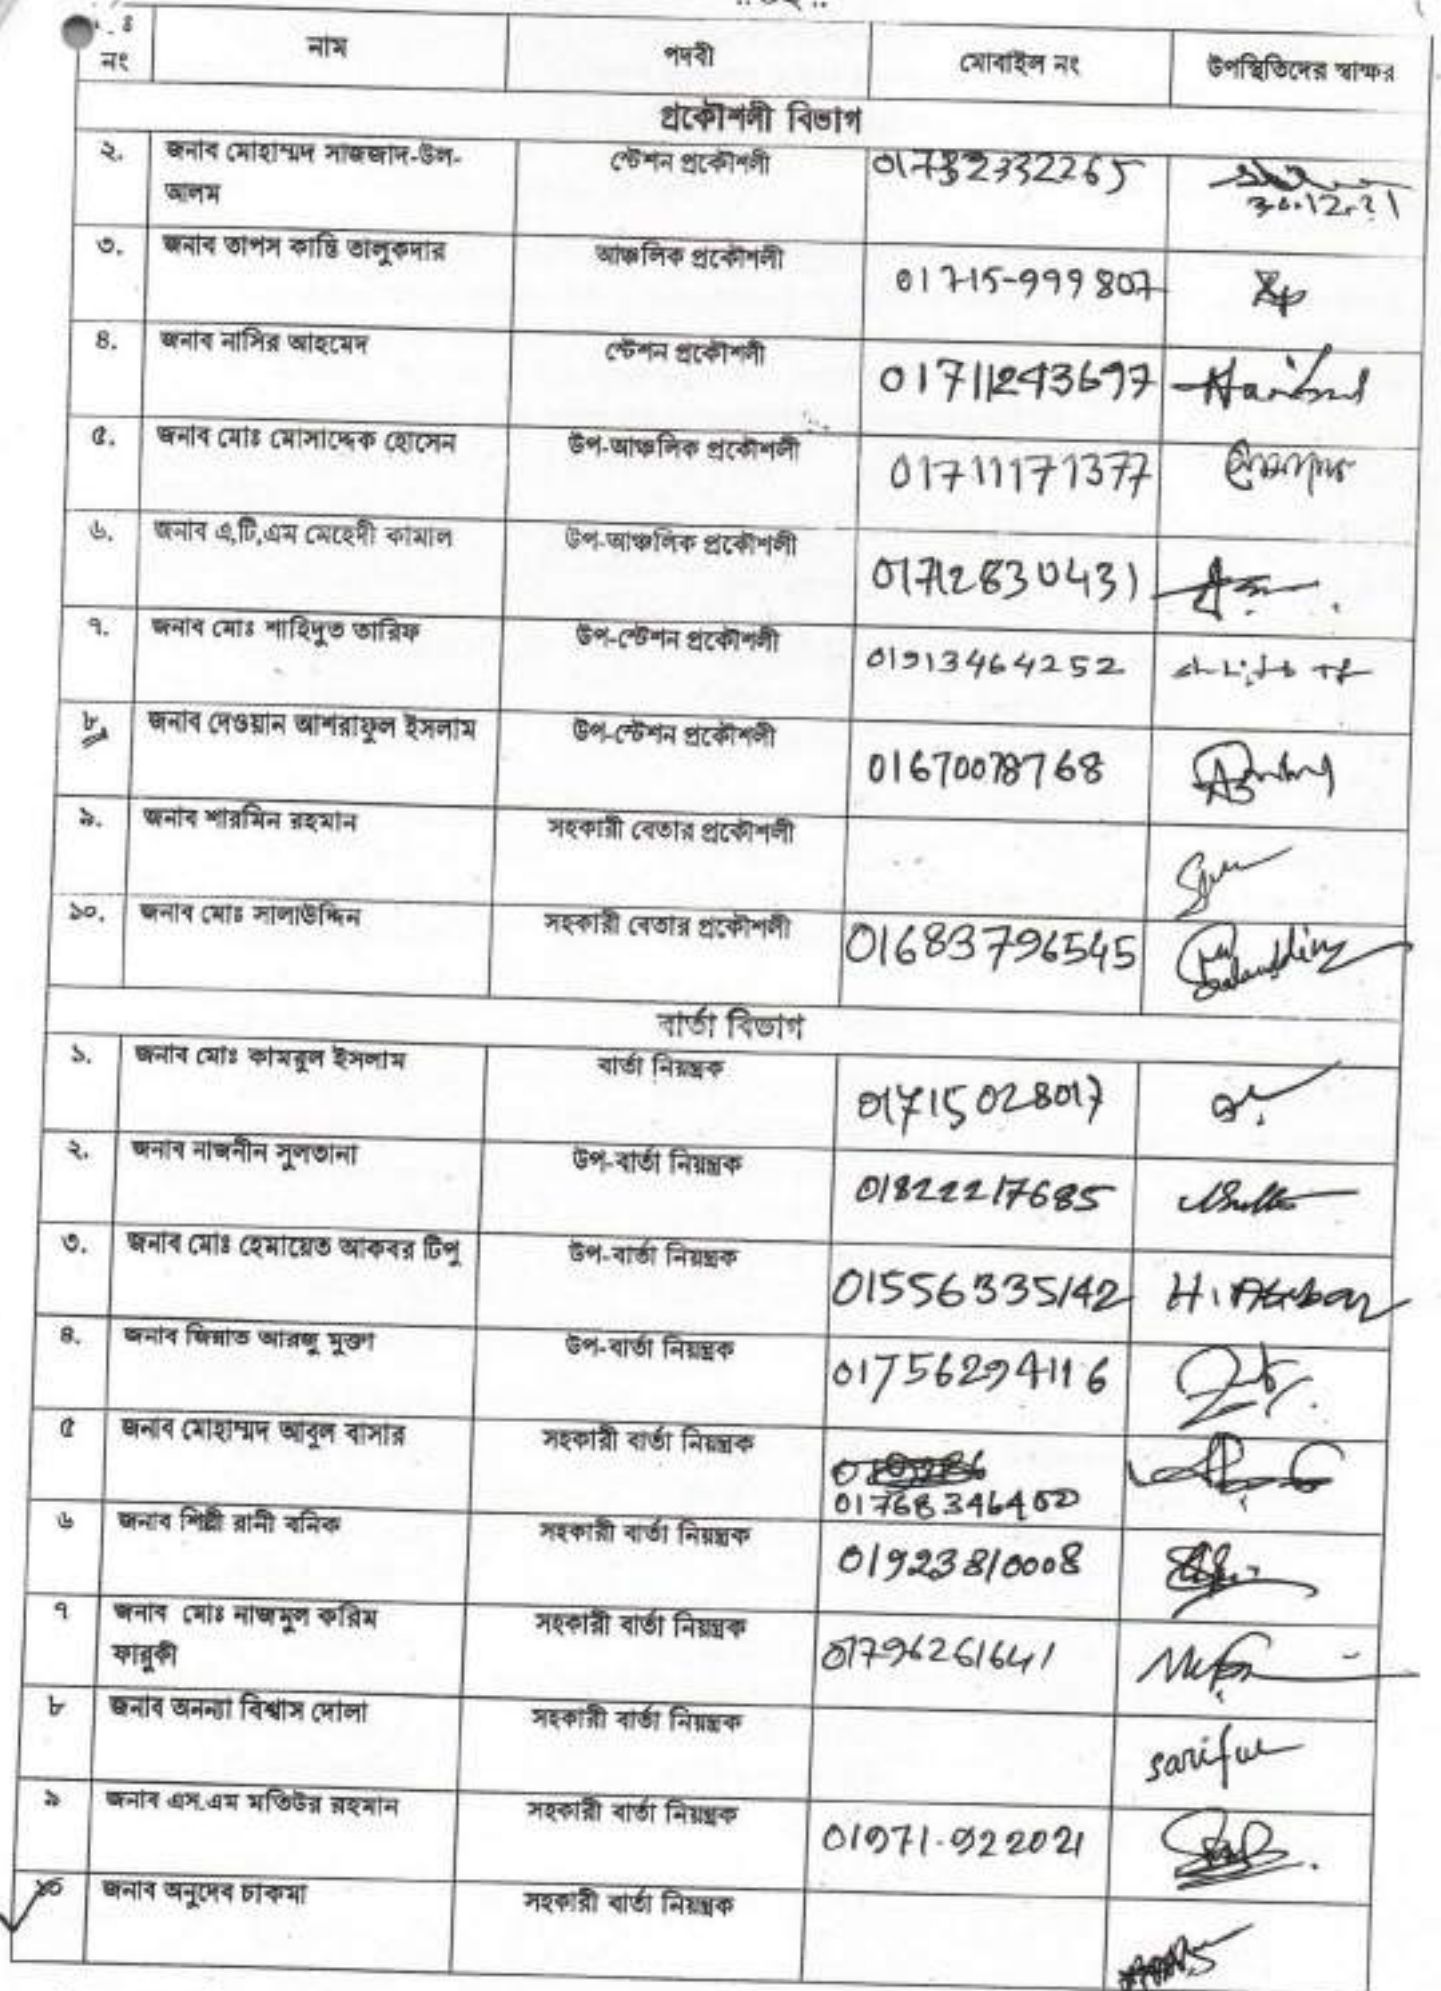 নং নাম পদবী মোবাইল নং উপস্থিতিদের স্বাক্ষর
প্রকৌশলী বিভাগ
২. জনাব মোহাম্মদ সাজজাদ-উল- স্টেশন প্রকৌশলী 01732332265
আলম 30.12.21
৩. জনাব তাপস কান্তি তালুকদার আঞ্চলিক প্রকৌশলী 01715-999807
৪. জনাব নাসির আহমেদ স্টেশন প্রকৌশলী 01711243697
৫. জনাব মোঃ মোসাদ্দেক হোসেন উপ-আঞ্চলিক প্রকৌশলী 01711171377
৬. জনাব এ,টি,এম মেহেদী কামাল উপ-আঞ্চলিক প্রকৌশলী 01712830431
৭. জনাব মোঃ শাহিদুত তারিফ উপ-স্টেশন প্রকৌশলী 01913464252
৮. জনাব দেওয়ান আশরাফুল ইসলাম উপ-স্টেশন প্রকৌশলী 01670078768
৯. জনাব শারমিন রহমান সহকারী বেতার প্রকৌশলী
১০. জনাব মোঃ সালাউদ্দিন সহকারী বেতার প্রকৌশলী 01683796545 Salauddin
বার্তা বিভাগ
১. জনাব মোঃ কামরুল ইসলাম বার্তা নিয়ন্ত্রক 01715028017
২. জনাব নাজনীন সুলতানা উপ-বার্তা নিয়ন্ত্রক 01822217685
৩. জনাব মোঃ হেমায়েত আকবর টিপু উপ-বার্তা নিয়ন্ত্রক 01556335142 H. Akbar
৪. জনাব জিন্নাত আরজু মুক্তা উপ-বার্তা নিয়ন্ত্রক 01756294116
৫ জনাব মোহাম্মদ আবুল বাসার সহকারী বার্তা নিয়ন্ত্রক
01768346402
৬ জনাব শিল্পী রানী বনিক সহকারী বার্তা নিয়ন্ত্রক 01923810008
৭ জনাব মোঃ নাজমুল করিম সহকারী বার্তা নিয়ন্ত্রক 01796261641
ফারুকী
৮ জনাব অনন্যা বিশ্বাস দোলা সহকারী বার্তা নিয়ন্ত্রক sariful
৯ জনাব এস.এম মতিউর রহমান সহকারী বার্তা নিয়ন্ত্রক 01971-922021
১০ জনাব অনুদেব চাকমা সহকারী বার্তা নিয়ন্ত্রক